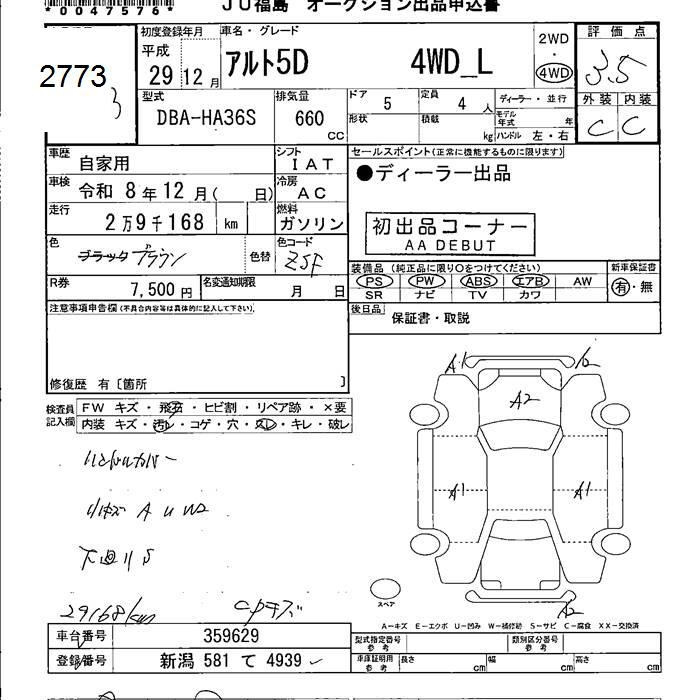 *0047576*
JU福島 オークション出品申込書
2773
3
初度登録年月 車名・グレード
平成 29 12月 アルト5D 4WD_L 2WD・4WD
評価点 3.5
外装 内装
C C
型式 DBA-HA36S 排気量 660 CC
ドア 5 定員 4人 ディーラー・並行
形状 積載 kg モデル年式 年 ハンドル 左・右
車歴 自家用 シフト IAT
車検 令和 8年12月( 日) 冷房 AC
走行 2万9千168 km 燃料 ガソリン
色 ブラック ブラウン 色替 色コード ZSF
R券 7,500円 名変通知期限 月 日
セールスポイント(正常に機能するものに限ります)
●ディーラー出品
初出品コーナー
AA DEBUT
装備品(純正品に限り○をつけてください) 新車保証書
PS PW ABS エアB AW 有・無
SR ナビ TV カワ
後日品 保証書・取説
注意事項申告欄(不具合内容等は具体的に記入して下さい)
修復歴 有〔箇所 〕
検査員記入欄 FW キズ・飛石・ヒビ割・リペア跡・×要
内装 キズ・汚レ・コゲ・穴・スレ・キレ・破レ
A1
A2
A1 A1
A2
スペア
ハンドルカバー
小キズ A U W2
下廻り S
29168km
A-キズ E-エクボ U-凹み W-補修跡 S-サビ C-腐食 XX-交換済
車台番号 359629
登録番号 新潟 581 て 4939
型式指定番号 参考 類別区分番号 参考
車庫証明用 参考 長さ cm 幅 cm 高さ cm